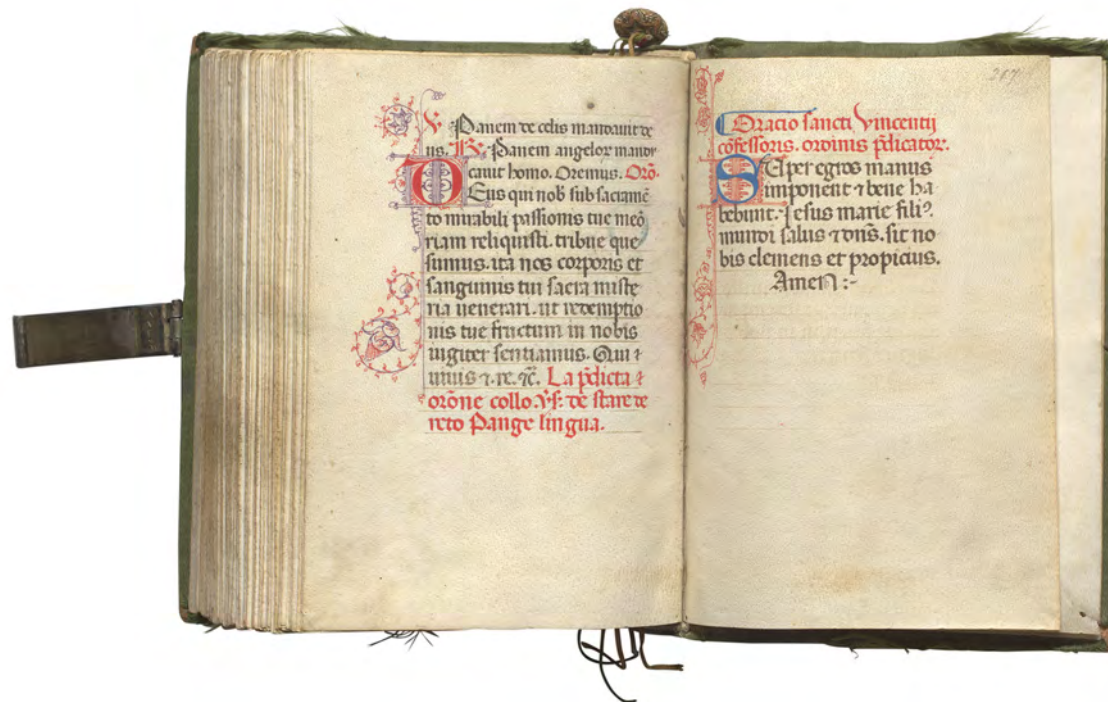 V. Panem de celis mandauit de
us. R. Panem angelor mandu
cauit homo. Oremus. Orõ.
DEus qui nob sub sacramẽ
to mirabili passionis tue meõ
riam reliquisti. tribue que
sumus. ita nos corporis et
sanguinis tui sacra miste
ria uenerari. ut redemptio
nis tue fructum in nobis
iugiter sentiamus. Qui &
uiuis ⁊. re. ⁊c̃. La p̃dicta &
orõne collo .Vſ. de stare de
reto Pange lingua.
Oracio sancti Vincentij
cõfessoris. ordinis p̃dicator.
SEꝑer egros manus
imponent ⁊ bene ha
bebunt. Jesus marie fili⁹.
mundi salus ⁊ dñs. sit no
bis clemens et propicius.
Amen :-